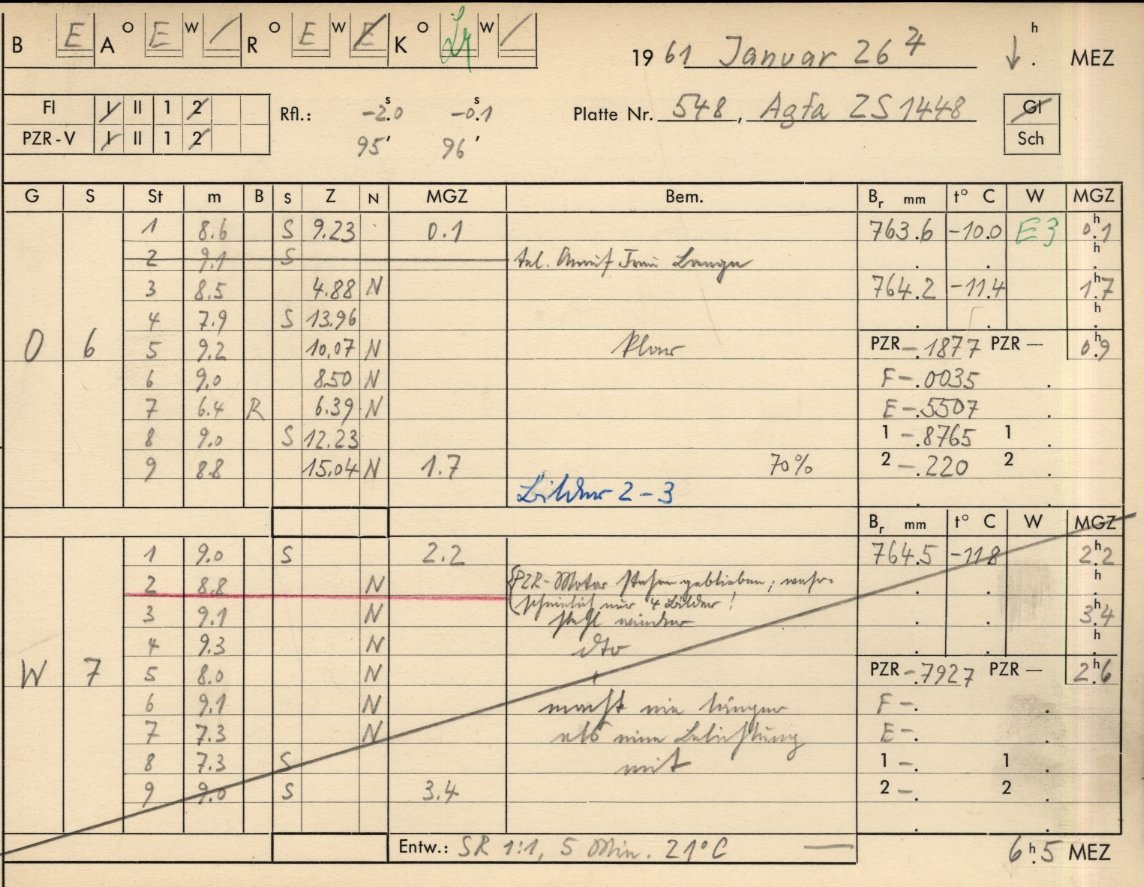 B E A O E W / R O E W E K O W / 19 61 Januar 26 h . MEZ
FI I II 1 2 Rfl.: -2.0 s -0.1 s Platte Nr. 548, Agfa ZS 1448 Gl
PZR-V I II 1 2 95' 96' Sch
G S St m B S Z N MGZ Bem. Br mm t° C W MGZ
1 8.6 S 9.23 0.1 763.6 -10.0 E3 0.1 h
2 9.1 S tel. Anruf Frau Lange . . h
3 8.5 4.88 N 764.2 -11.4 1.7
4 7.9 S 13.96 . . h
O 6 5 9.2 10.07 N klar PZR - .1877 PZR - 0.9 h
6 9.0 8.50 N F - .0035 .
7 6.4 R 6.39 N E - .5507
8 9.0 S 12.23 1 - .8765 1 .
9 8.8 15.04 N 1.7 70% 2 - .220 2 .
Bilder 2-3
Br mm t° C W MGZ
1 9.0 S 2.2 764.5 -11.8 2.2 h
2 8.8 N PZR-Motor stehen geblieben; wahr- . . h
scheinlich nur 4 Bilder!
3 9.1 N steht wieder . . 3.4
4 9.3 N dto . . h
W 7 5 8.0 N " PZR - .7927 PZR - 2.6 h
6 9.1 N macht nie länger F - . .
7 7.3 N als eine Belichtung E - . .
8 7.3 S mit 1 - . 1 .
9 9.0 S 3.4 2 - . 2 .
Entw.: SR 1:1, 5 Min. 21°C — 6.5 h MEZ